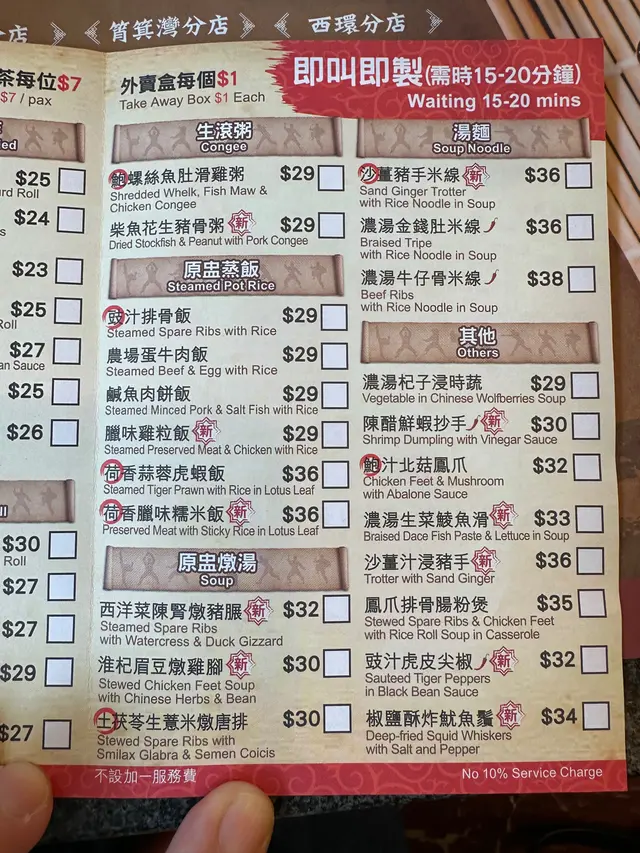 店 筲箕灣分店 西環分店
茶每位$7
$7 / pax
外賣盒每個$1
Take Away Box $1 Each
即叫即製(需時15-20分鐘)
Waiting 15-20 mins
$25
$24
$23
$25
Roll
$27
an Sauce
$25
$26
$30
Roll
$27
$27
$29
$27
生滾粥
Congee
鮑螺絲魚肚滑雞粥 $29
Shredded Whelk, Fish Maw &
Chicken Congee
柴魚花生豬骨粥 新 $29
Dried Stockfish & Peanut with Pork Congee
原盅蒸飯
Steamed Pot Rice
豉汁排骨飯 $29
Steamed Spare Ribs with Rice
農場蛋牛肉飯 $29
Steamed Beef & Egg with Rice
鹹魚肉餅飯 $29
Steamed Minced Pork & Salt Fish with Rice
臘味雞粒飯 新 $29
Steamed Preserved Meat & Chicken with Rice
荷香蒜蓉虎蝦飯 $36
Steamed Tiger Prawn with Rice in Lotus Leaf
荷香臘味糯米飯 新 $36
Preserved Meat with Sticky Rice in Lotus Leaf
原盅燉湯
Soup
西洋菜陳腎燉豬𦟌 新 $32
Steamed Spare Ribs
with Watercress & Duck Gizzard
淮杞眉豆燉雞腳 新 $30
Stewed Chicken Feet Soup
with Chinese Herbs & Bean
土茯苓生薏米燉唐排 $30
Stewed Spare Ribs with
Smilax Glabra & Semen Coicis
湯麵
Soup Noodle
沙薑豬手米線 新 $36
Sand Ginger Trotter
with Rice Noodle in Soup
濃湯金錢肚米線 $36
Braised Tripe
with Rice Noodle in Soup
濃湯牛仔骨米線 $38
Beef Ribs
with Rice Noodle in Soup
其他
Others
濃湯杞子浸時蔬 $29
Vegetable in Chinese Wolfberries Soup
陳醋鮮蝦抄手 新 $30
Shrimp Dumpling with Vinegar Sauce
鮑汁北菇鳳爪 $32
Chicken Feet & Mushroom
with Abalone Sauce
濃湯生菜鯪魚滑 新 $33
Braised Dace Fish Paste & Lettuce in Soup
沙薑汁浸豬手 新 $36
Trotter with Sand Ginger
鳳爪排骨腸粉煲 $35
Stewed Spare Ribs & Chicken Feet
with Rice Roll Soup in Casserole
豉汁虎皮尖椒 新 $32
Sauteed Tiger Peppers
in Black Bean Sauce
椒鹽酥炸魷魚鬚 新 $34
Deep-fried Squid Whiskers
with Salt and Pepper
不設加一服務費
No 10% Service Charge